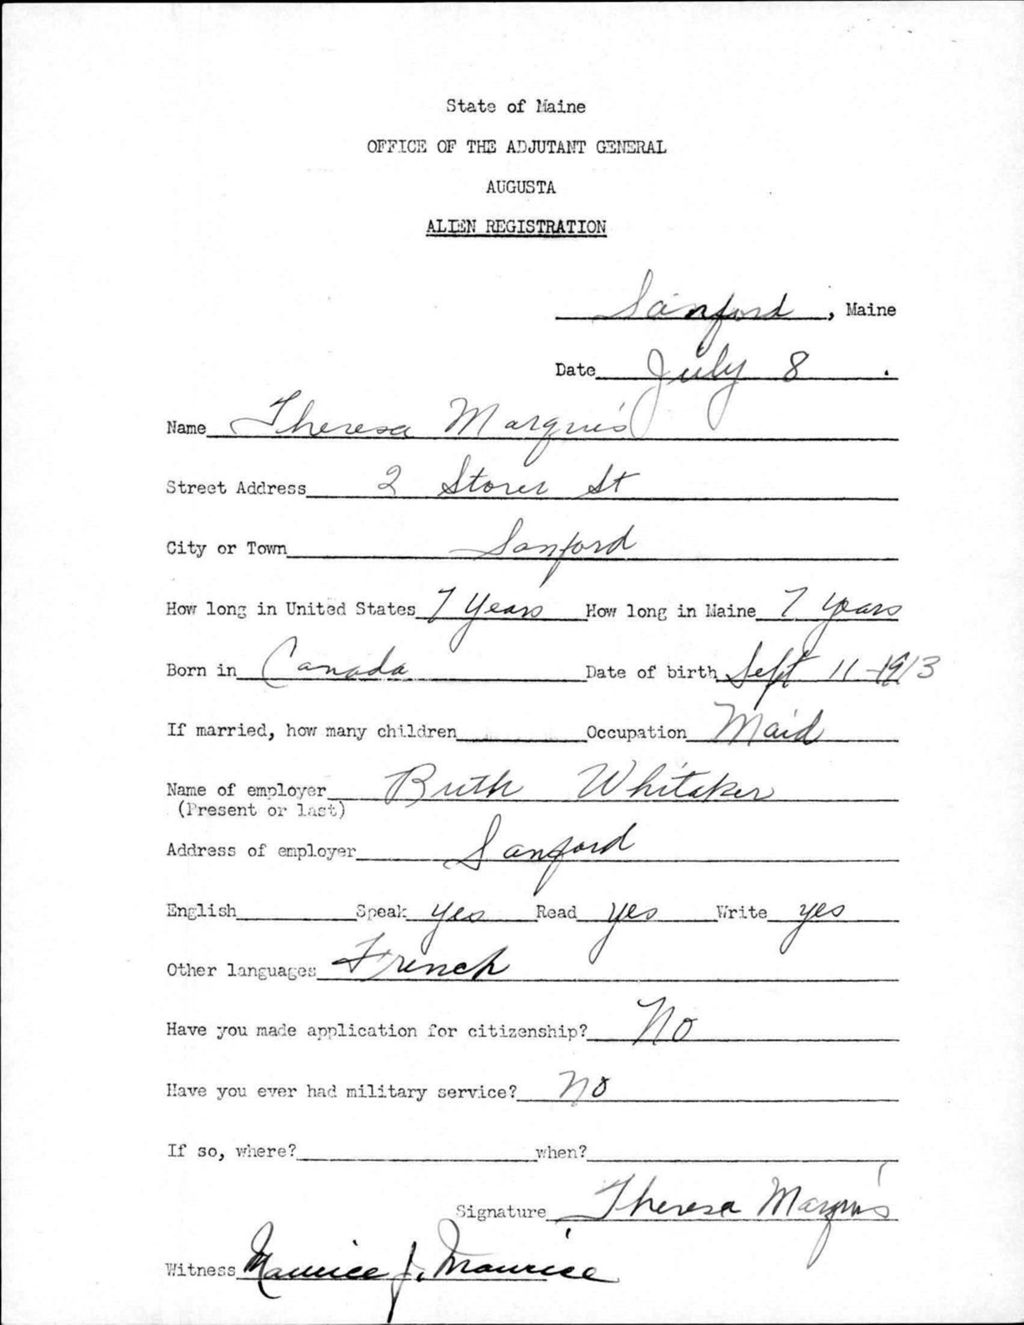 State of Maine
OFFICE OF THE ADJUTANT GENERAL
AUGUSTA
ALIEN REGISTRATION
Sanford, Maine
Date July 8.
Name Theresa Marquis
Street Address 2 Storer St
City or Town Sanford
How long in United States 7 Years How long in Maine 7 years
Born in Canada Date of birth Sept 11-1913
If married, how many children Occupation Maid
Name of employer Ruth Whitaker
(Present or last)
Address of employer Sanford
English Speak yes Read yes Write yes
Other languages French
Have you made application for citizenship? No
Have you ever had military service? No
If so, where? when?
Signature Theresa Marquis
Witness Maurice J. Maurice